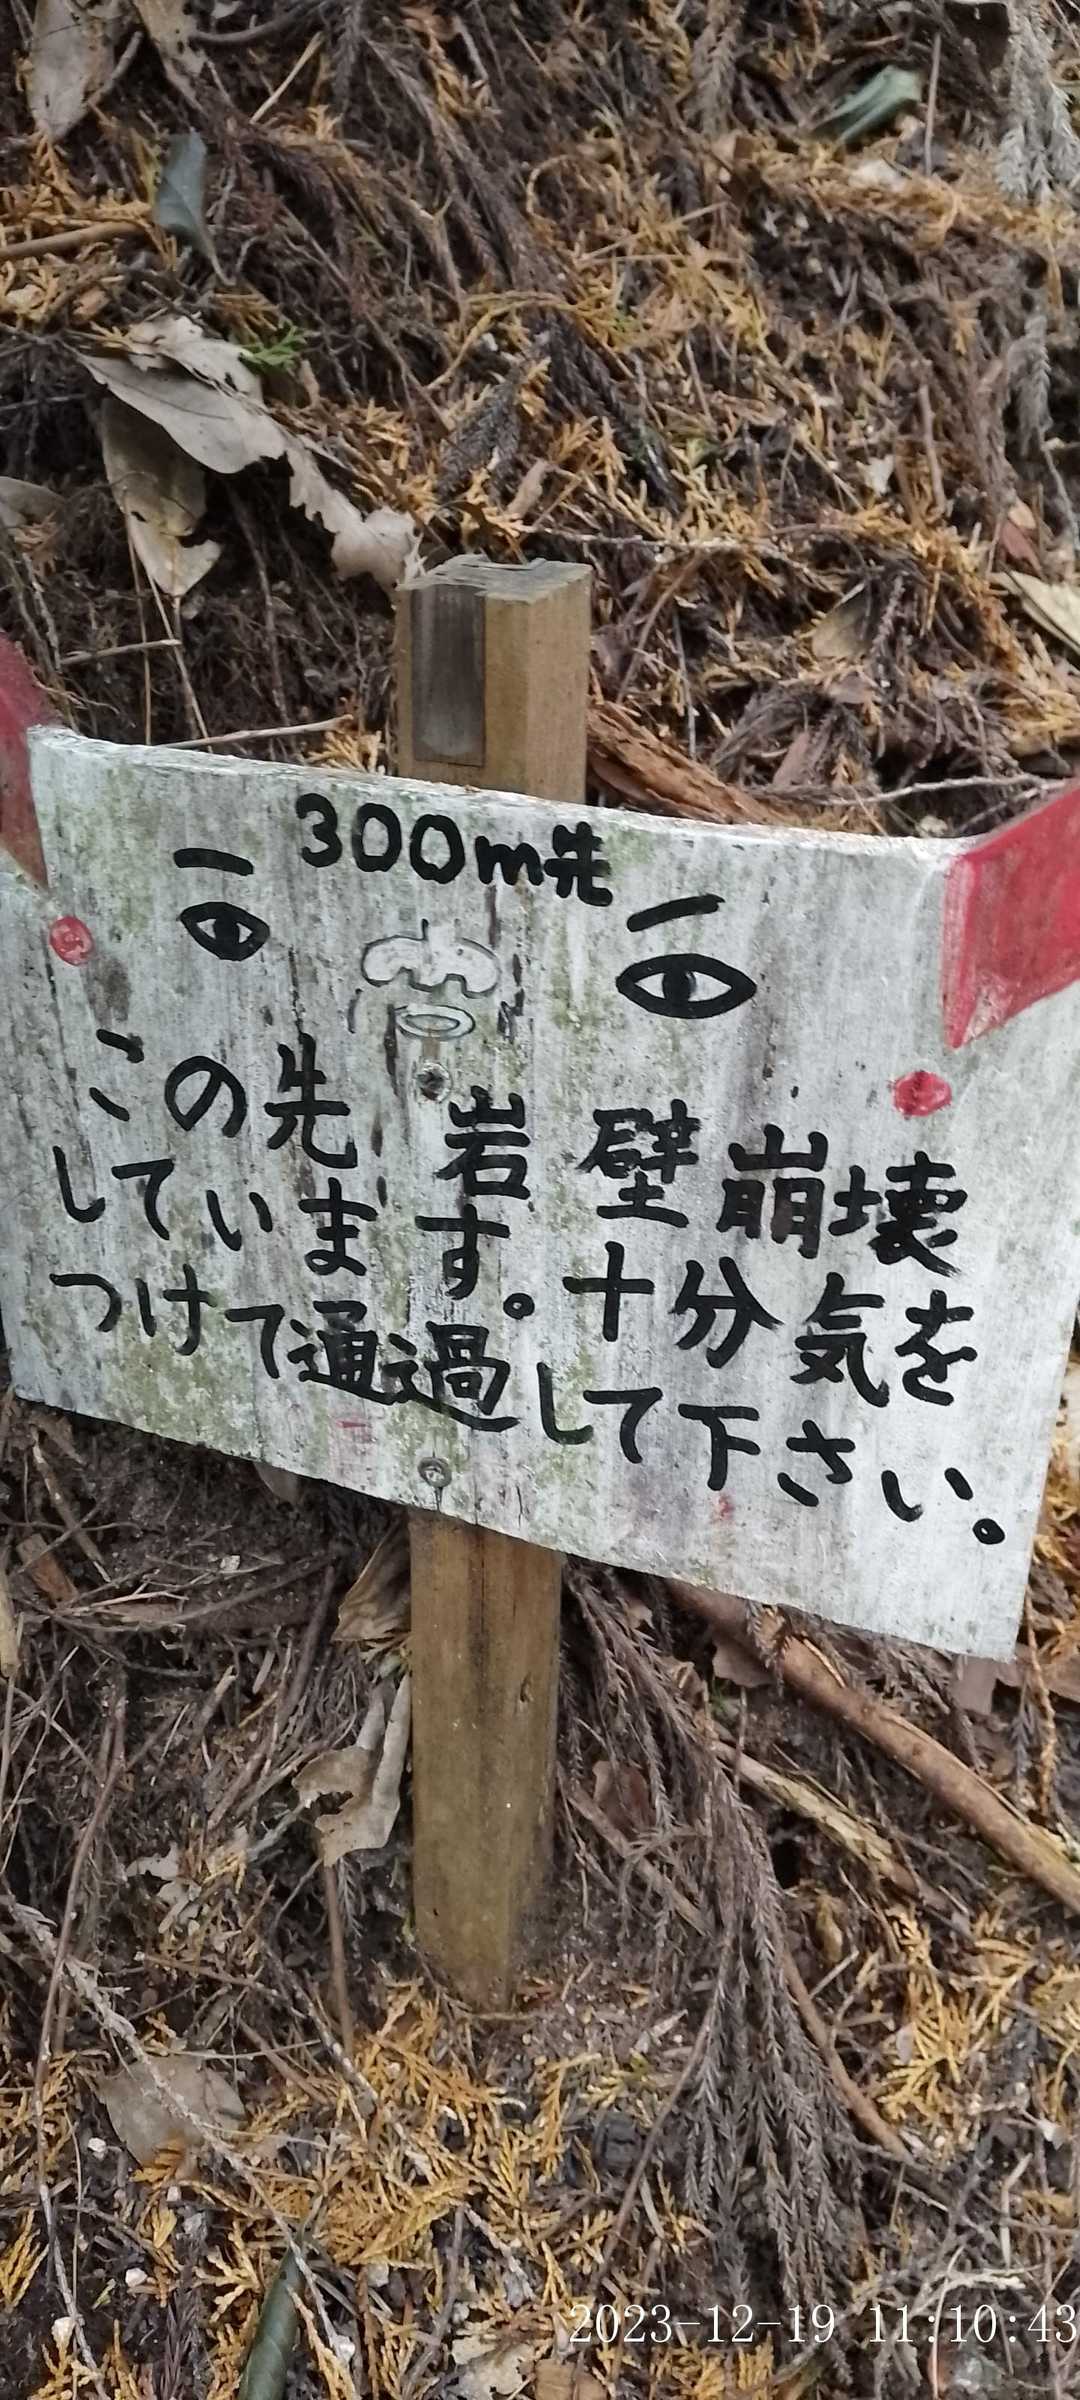 300m先
この先 岩壁崩壊
しています。十分気を
つけて通過して下さい。
2023-12-19 11:10:43